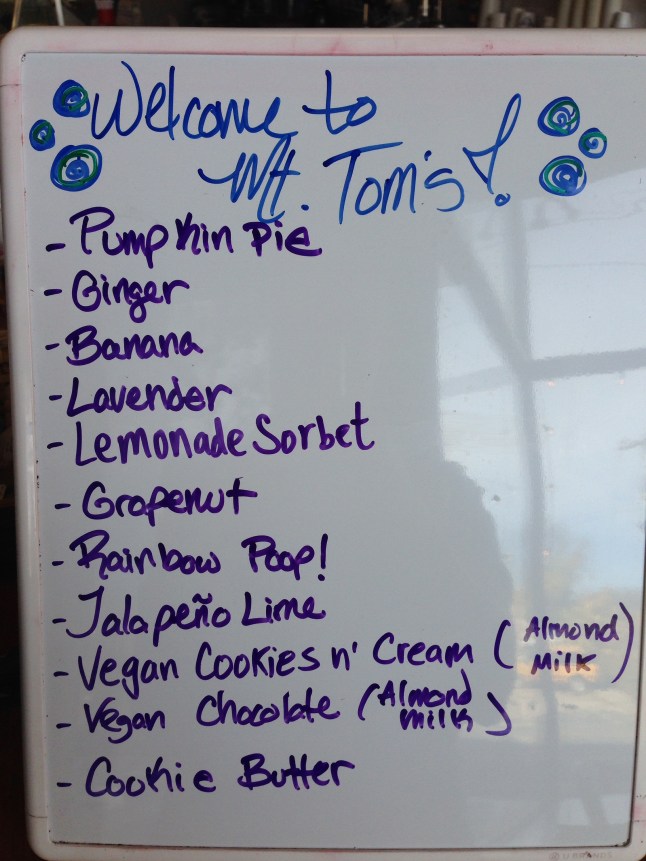 Welcome to
Mt. Tom's!
- Pumpkin Pie
- Ginger
- Banana
- Lavender
- Lemonade Sorbet
- Grapenut
- Rainbow Poop!
- Jalapeño Lime
- Vegan Cookies n' Cream (Almond Milk)
- Vegan Chocolate (Almond Milk)
- Cookie Butter